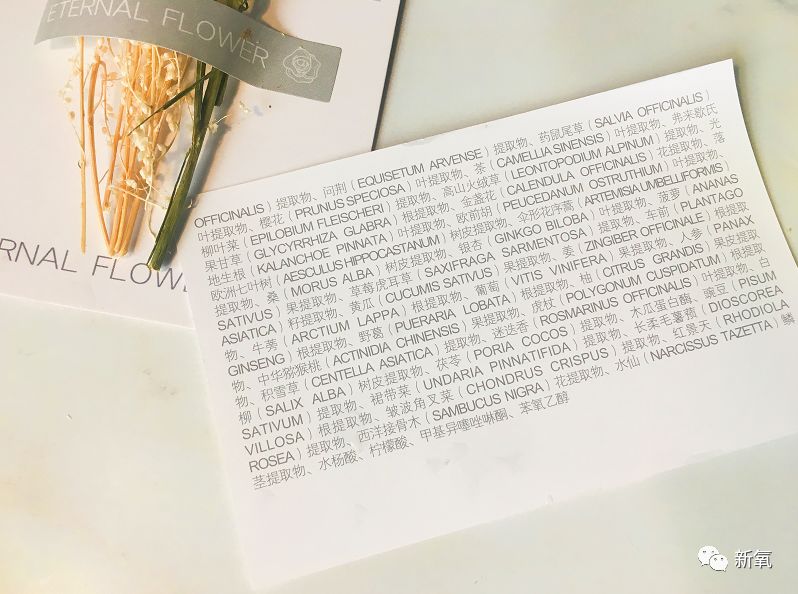 ETERNAL FLOWER
ERNAL FLOWE
OFFICINALIS）提取物、问荆（EQUISETUM ARVENSE）提取物、药鼠尾草（SALVIA OFFICINALIS）
叶提取物、樱花（PRUNUS SPECIOSA）叶提取物、茶（CAMELLIA SINENSIS）叶提取物、弗来歇氏
柳叶菜（EPILOBIUM FLEISCHERI）提取物、高山火绒草（LEONTOPODIUM ALPINUM）提取物、光
果甘草（GLYCYRRHIZA GLABRA）根提取物、金盏花（CALENDULA OFFICINALIS）花提取物、落
地生根（KALANCHOE PINNATA）叶提取物、欧前胡（PEUCEDANUM OSTRUTHIUM）叶提取物、
欧洲七叶树（AESCULUS HIPPOCASTANUM）树皮提取物、伞形花序蒿（ARTEMISIA UMBELLIFORMIS）
提取物、桑（MORUS ALBA）树皮提取物、银杏（GINKGO BILOBA）叶提取物、菠萝（ANANAS
SATIVUS）果提取物、草莓虎耳草（SAXIFRAGA SARMENTOSA）提取物、车前（PLANTAGO
ASIATICA）籽提取物、黄瓜（CUCUMIS SATIVUS）果提取物、姜（ZINGIBER OFFICINALE）根提取
物、牛蒡（ARCTIUM LAPPA）根提取物、葡萄（VITIS VINIFERA）果提取物、人参（PANAX
GINSENG）根提取物、野葛（PUERARIA LOBATA）根提取物、柚（CITRUS GRANDIS）果皮提取
物、中华猕猴桃（ACTINIDIA CHINENSIS）果提取物、虎杖（POLYGONUM CUSPIDATUM）根提取
物、积雪草（CENTELLA ASIATICA）提取物、迷迭香（ROSMARINUS OFFICINALIS）叶提取物、白
柳（SALIX ALBA）树皮提取物、茯苓（PORIA COCOS）提取物、木瓜蛋白酶、豌豆（PISUM
SATIVUM）提取物、裙带菜（UNDARIA PINNATIFIDA）提取物、长柔毛薯蓣（DIOSCOREA
VILLOSA）根提取物、皱波角叉菜（CHONDRUS CRISPUS）提取物、红景天（RHODIOLA
ROSEA）提取物、西洋接骨木（SAMBUCUS NIGRA）花提取物、水仙（NARCISSUS TAZETTA）鳞
茎提取物、水杨酸、柠檬酸、甲基异噻唑啉酮、苯氧乙醇
新氧